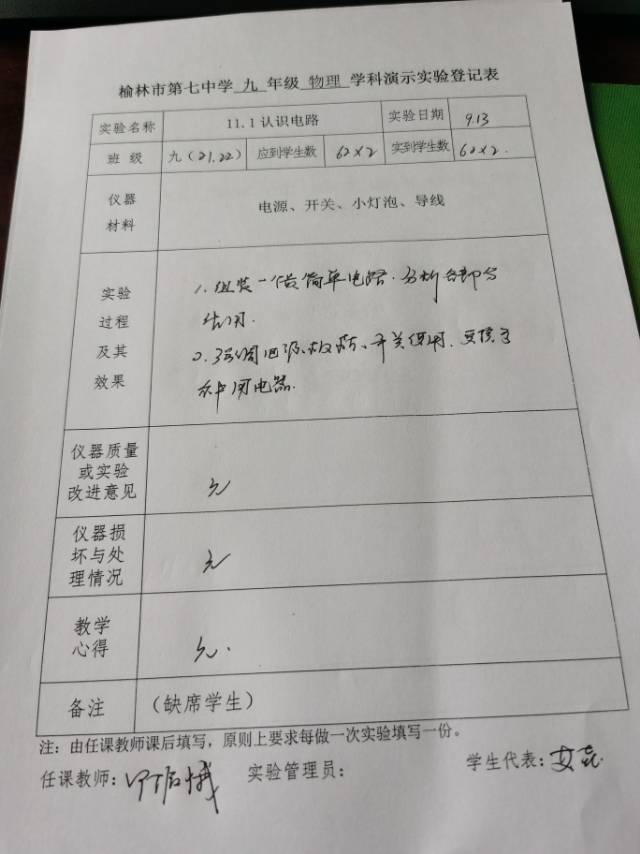 榆林市第七中学 九 年级 物理 学科演示实验登记表
实验名称 11.1认识电路 实验日期 9.13
班 级 九(21.22) 应到学生数 62×2 实到学生数 62×2.
仪器
材料
电源、开关、小灯泡、导线
实验
过程
及其
效果
1.组装一个最简单电路.分析各部分
作用.
2.强调电源、开关使用.
用电器.
仪器质量
或实验
改进意见
无
仪器损
坏与处
理情况
无
教学
心得
无.
备注 (缺席学生)
注:由任课教师课后填写,原则上要求每做一次实验填写一份。
任课教师: 实验管理员: 学生代表: